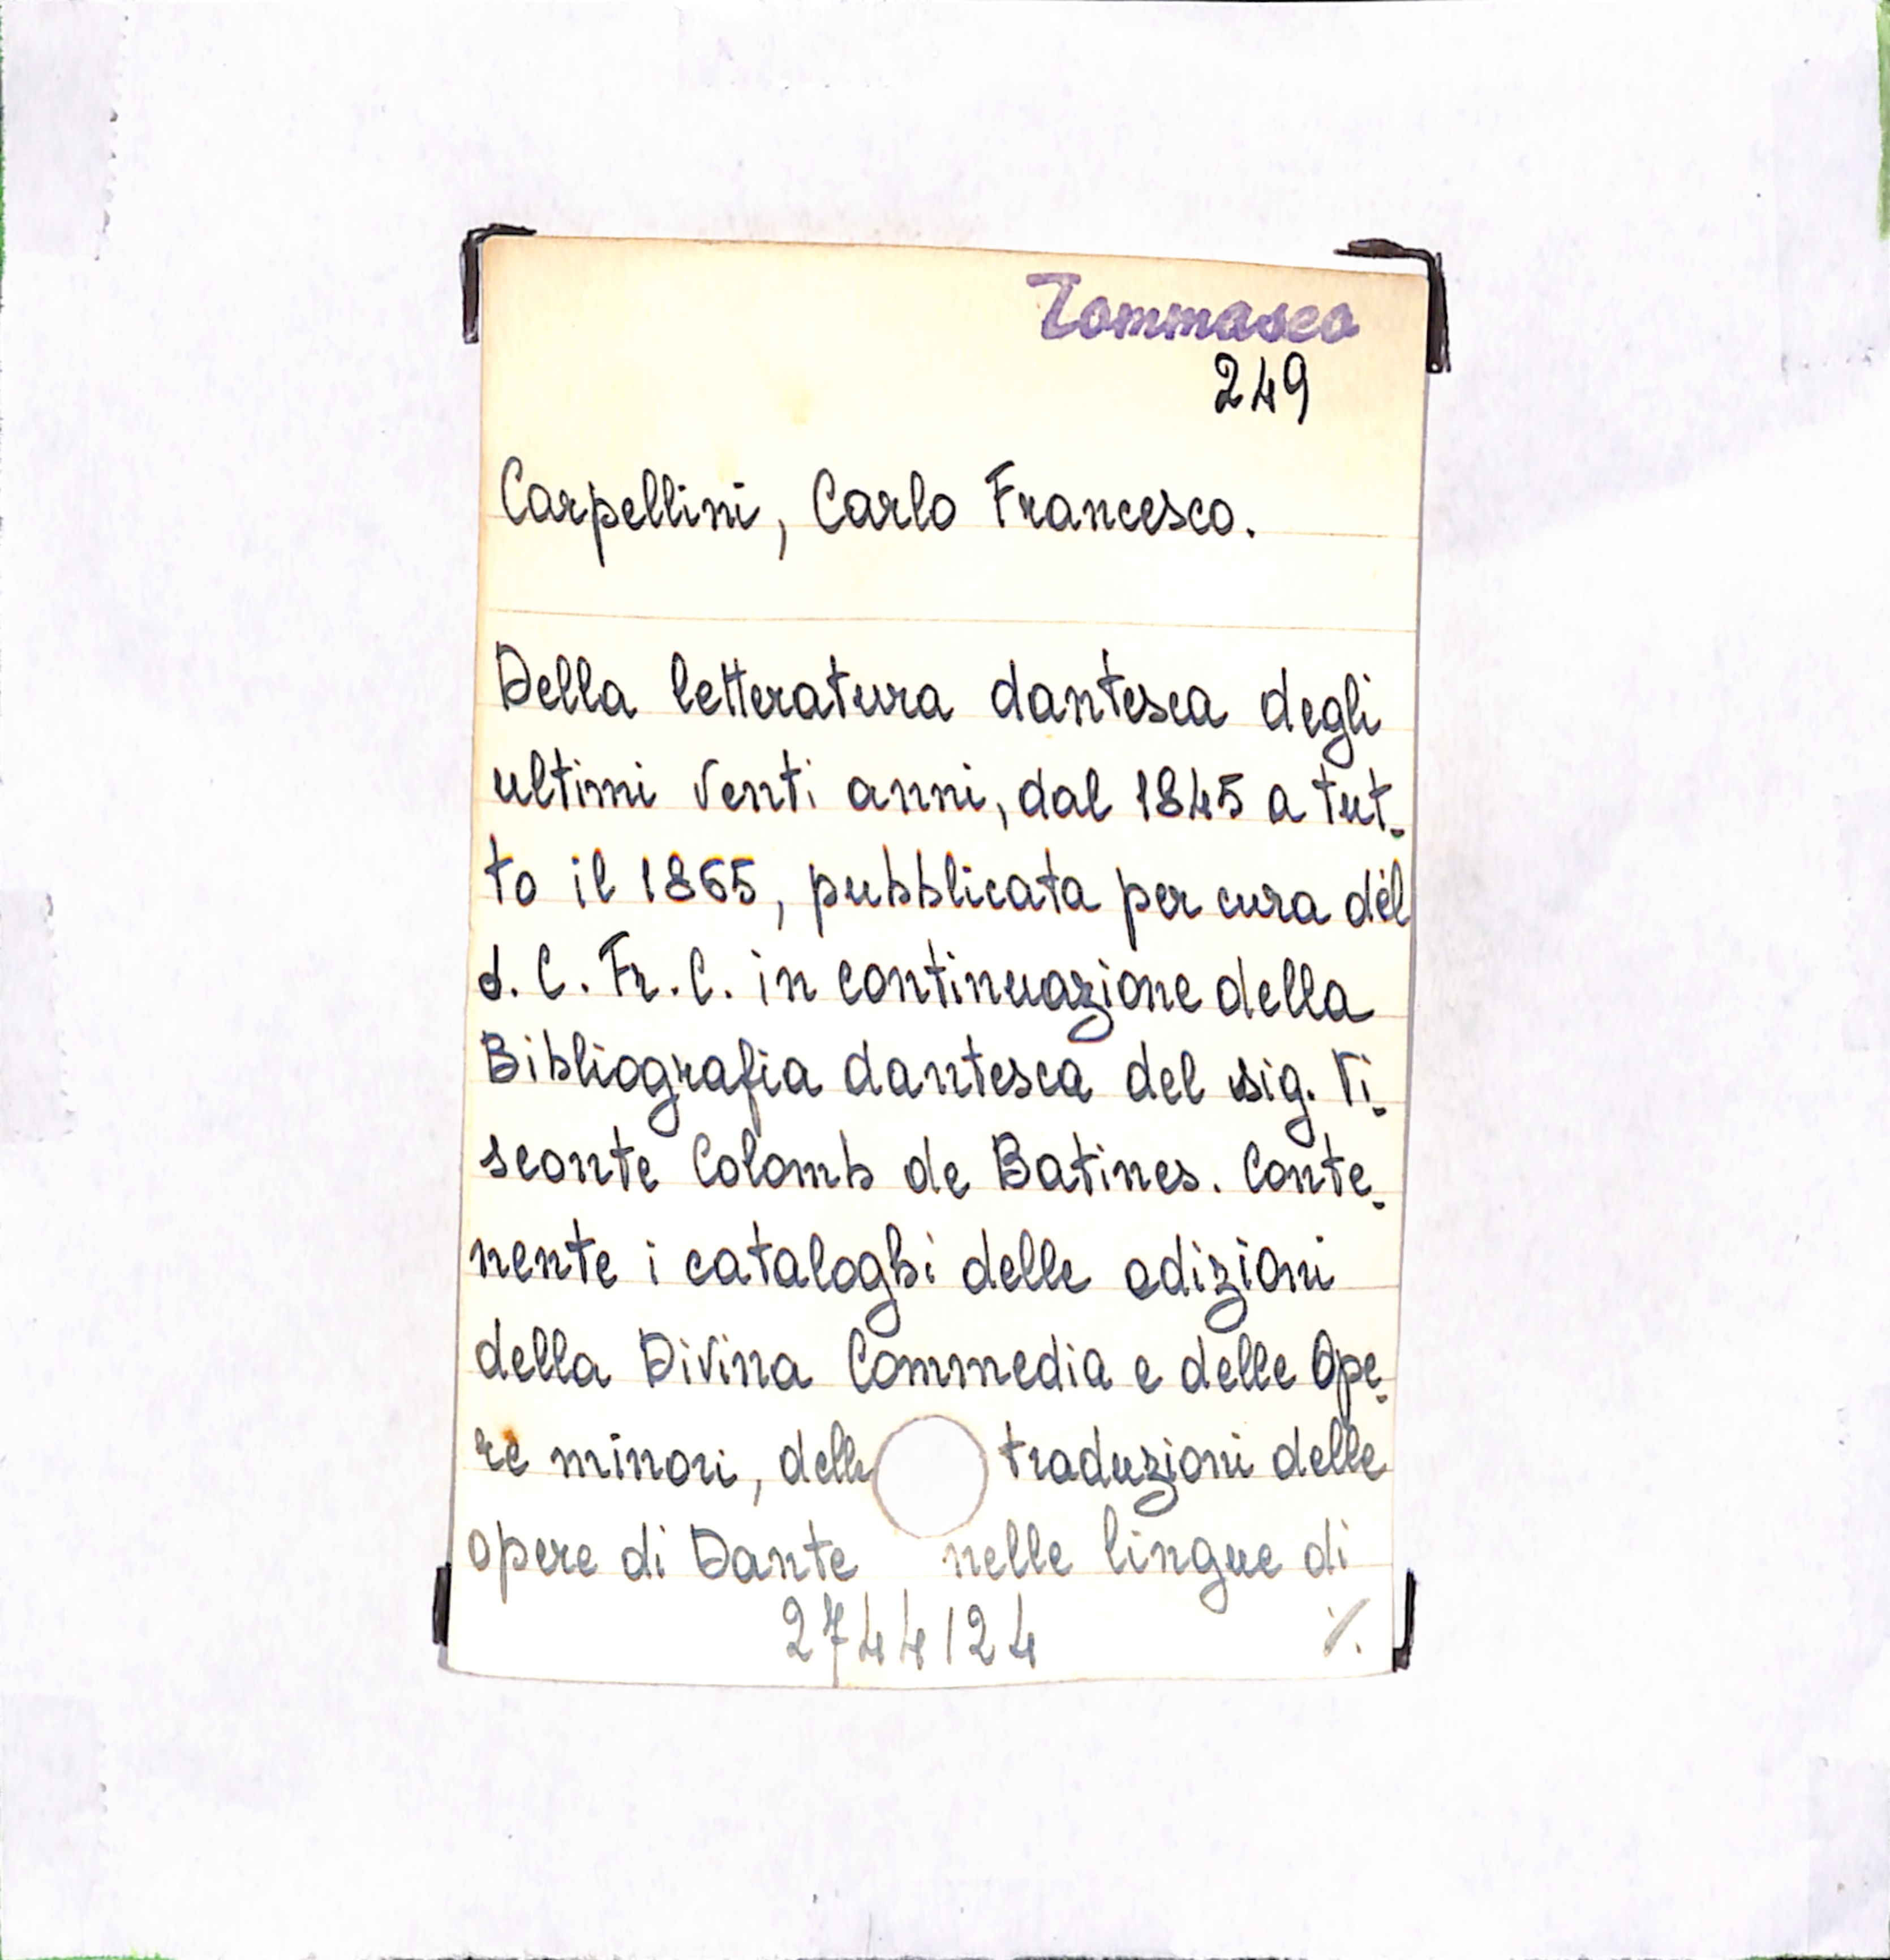 Tommaseo
249
Carpellini, Carlo Francesco.
Della letteratura dantesca degli
ultimi venti anni, dal 1845 a tut-
to il 1865, pubblicata per cura del
d. C. Fr. C. in continuazione della
Bibliografia dantesca del sig. Vi-
sconte Colomb de Batines. Conte-
nente i cataloghi delle edizioni
della Divina Commedia e delle Ope-
re minori, delle traduzioni delle
opere di Dante nelle lingue di
2744124 ./.